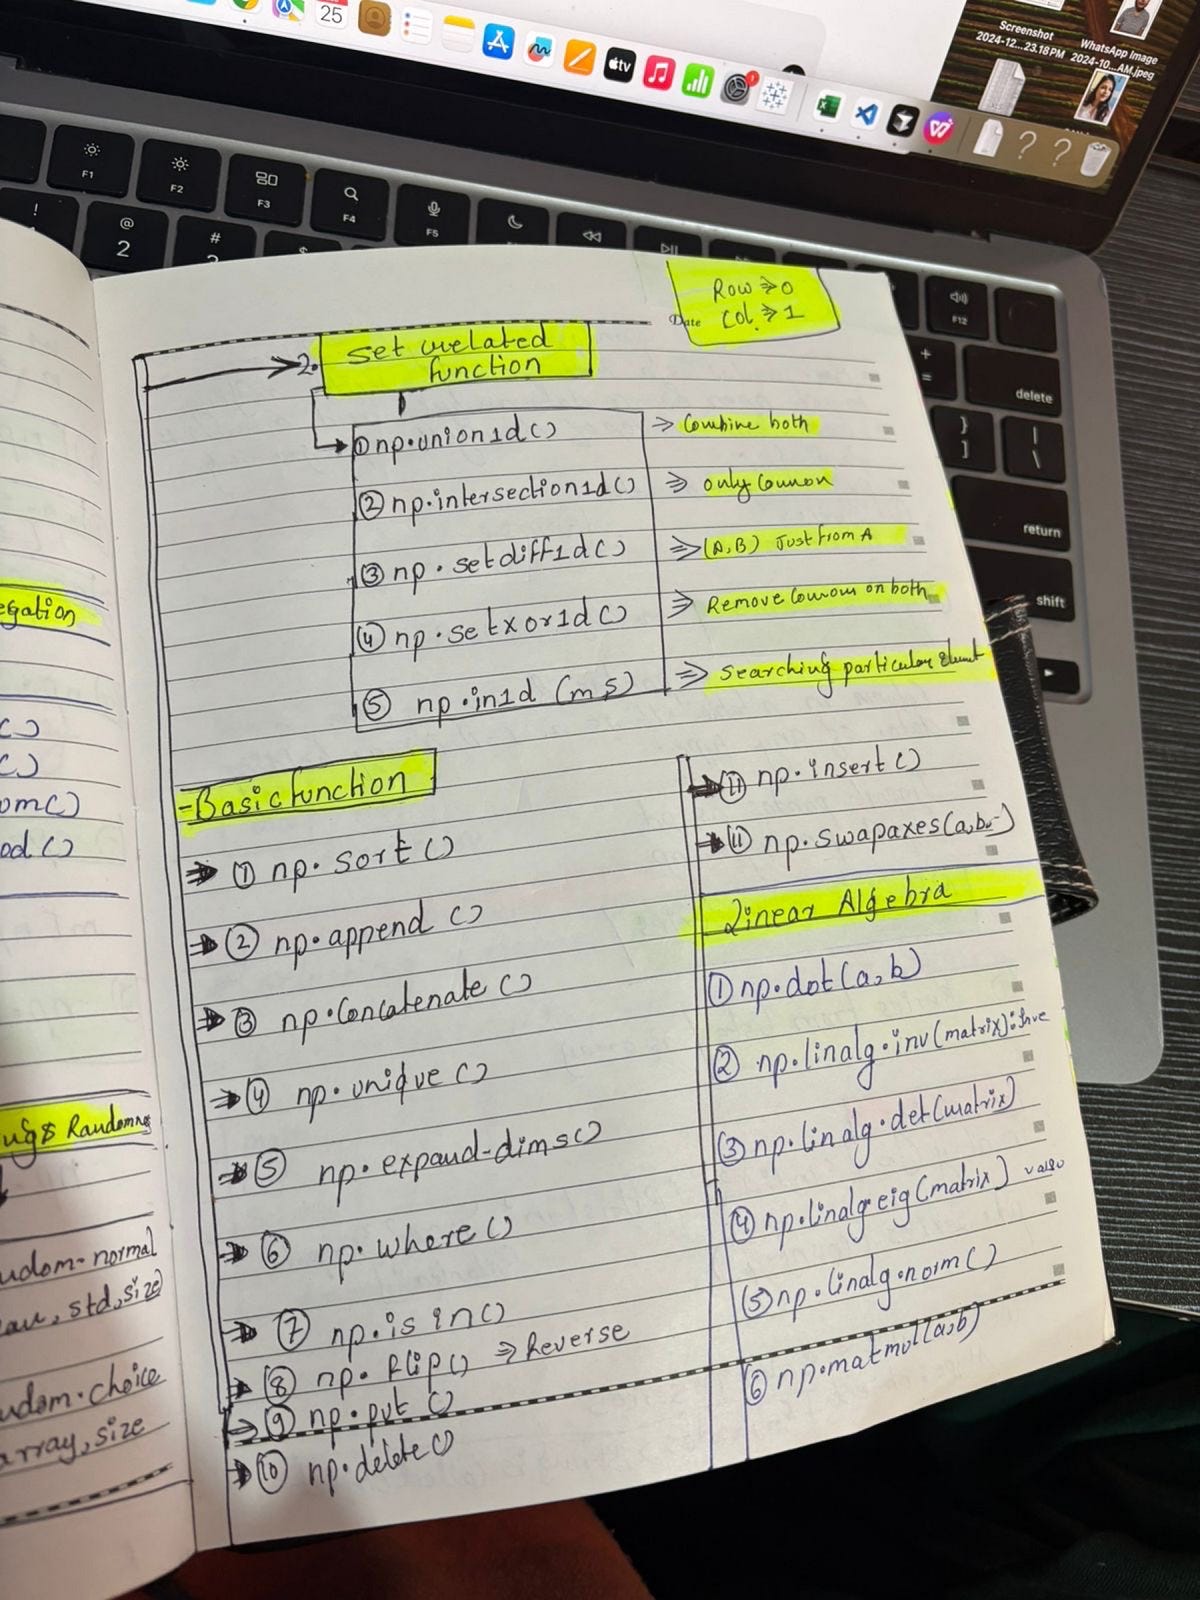 25
tv
Screenshot
2024-12...23.18 PM
WhatsApp Image
2024-10...AM.jpeg
F1
F2
F3
F4
F5
F12
!
@
2
#
+
=
delete
}
]
|
\
return
shift
Row ⇒ 0
Date Col. ⇒ 1
2. Set related
function
① np.union1d() ⇒ Combine both
② np.intersection1d() ⇒ only common
③ np.setdiff1d() ⇒ (A,B) Just from A
④ np.setxor1d() ⇒ Remove common on both
⑤ np.in1d (m,5) ⇒ Searching particular element
- Basic function
① np.sort()
② np.append()
③ np.concatenate()
④ np.unique()
⑤ np.expand-dims()
⑥ np.where()
⑦ np.is in()
⑧ np.flip() ⇒ Reverse
⑨ np.put()
⑩ np.delete()
⑪ np.insert()
⑪ np.swapaxes(a,b,-)
Linear Algebra
① np.dot(a,b)
② np.linalg.inv(matrix):Inve
③ np.linalg.det(matrix)
④ np.linalg.eig(matrix)
⑤ np.linalg.norm()
⑥ np.matmul(a,b)
egation
()
()
om()
od.()
ug& Randomnes
udom.normal
ean, std, size)
udom.choice
array, size